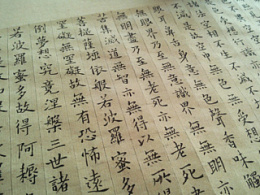 不生不滅不
是故空中無色無
耳鼻舌身意無色聲香味觸
眼界乃至無意識界無無明
無明盡乃至無老死亦無老死
苦集滅道無智亦無得以無所
菩提薩埵依般若波羅蜜多
罣礙無罣礙故無有恐怖遠
倒夢想究竟涅槃三世諸
若波羅蜜多故得阿耨